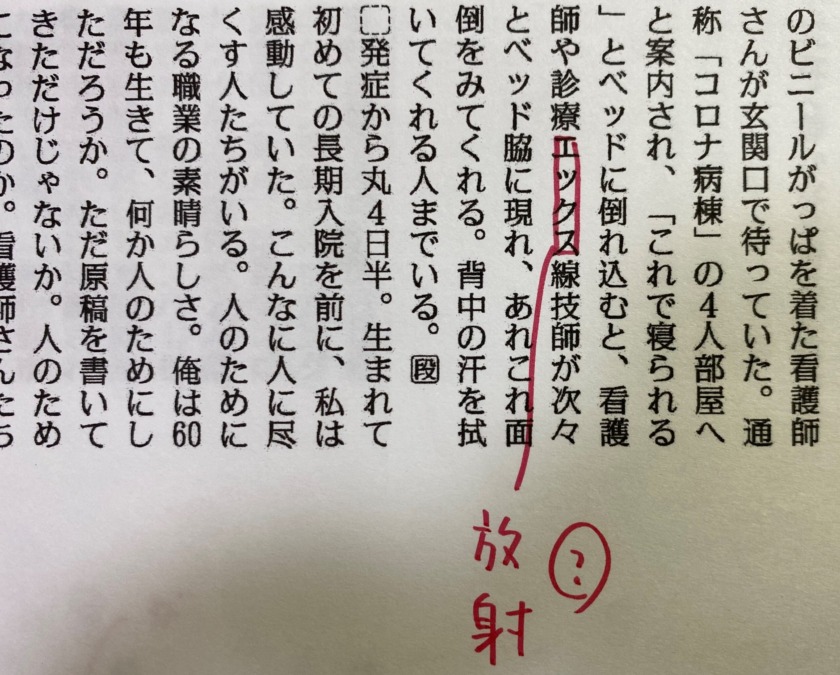 のビニールがっぱを着た看護師
さんが玄関口で待っていた。通
称「コロナ病棟」の4人部屋へ
と案内され、「これで寝られる
」とベッドに倒れ込むと、看護
師や診療エックス線技師が次々
とベッド脇に現れ、あれこれ面
倒をみてくれる。背中の汗を拭
いてくれる人までいる。段
発症から丸4日半。生まれて
初めての長期入院を前に、私は
感動していた。こんなに人に尽
くす人たちがいる。人のために
なる職業の素晴らしさ。俺は60
年も生きて、何か人のためにし
ただろうか。ただ原稿を書いて
きただけじゃないか。人のため
になったのか。看護師さんたち
放射
?